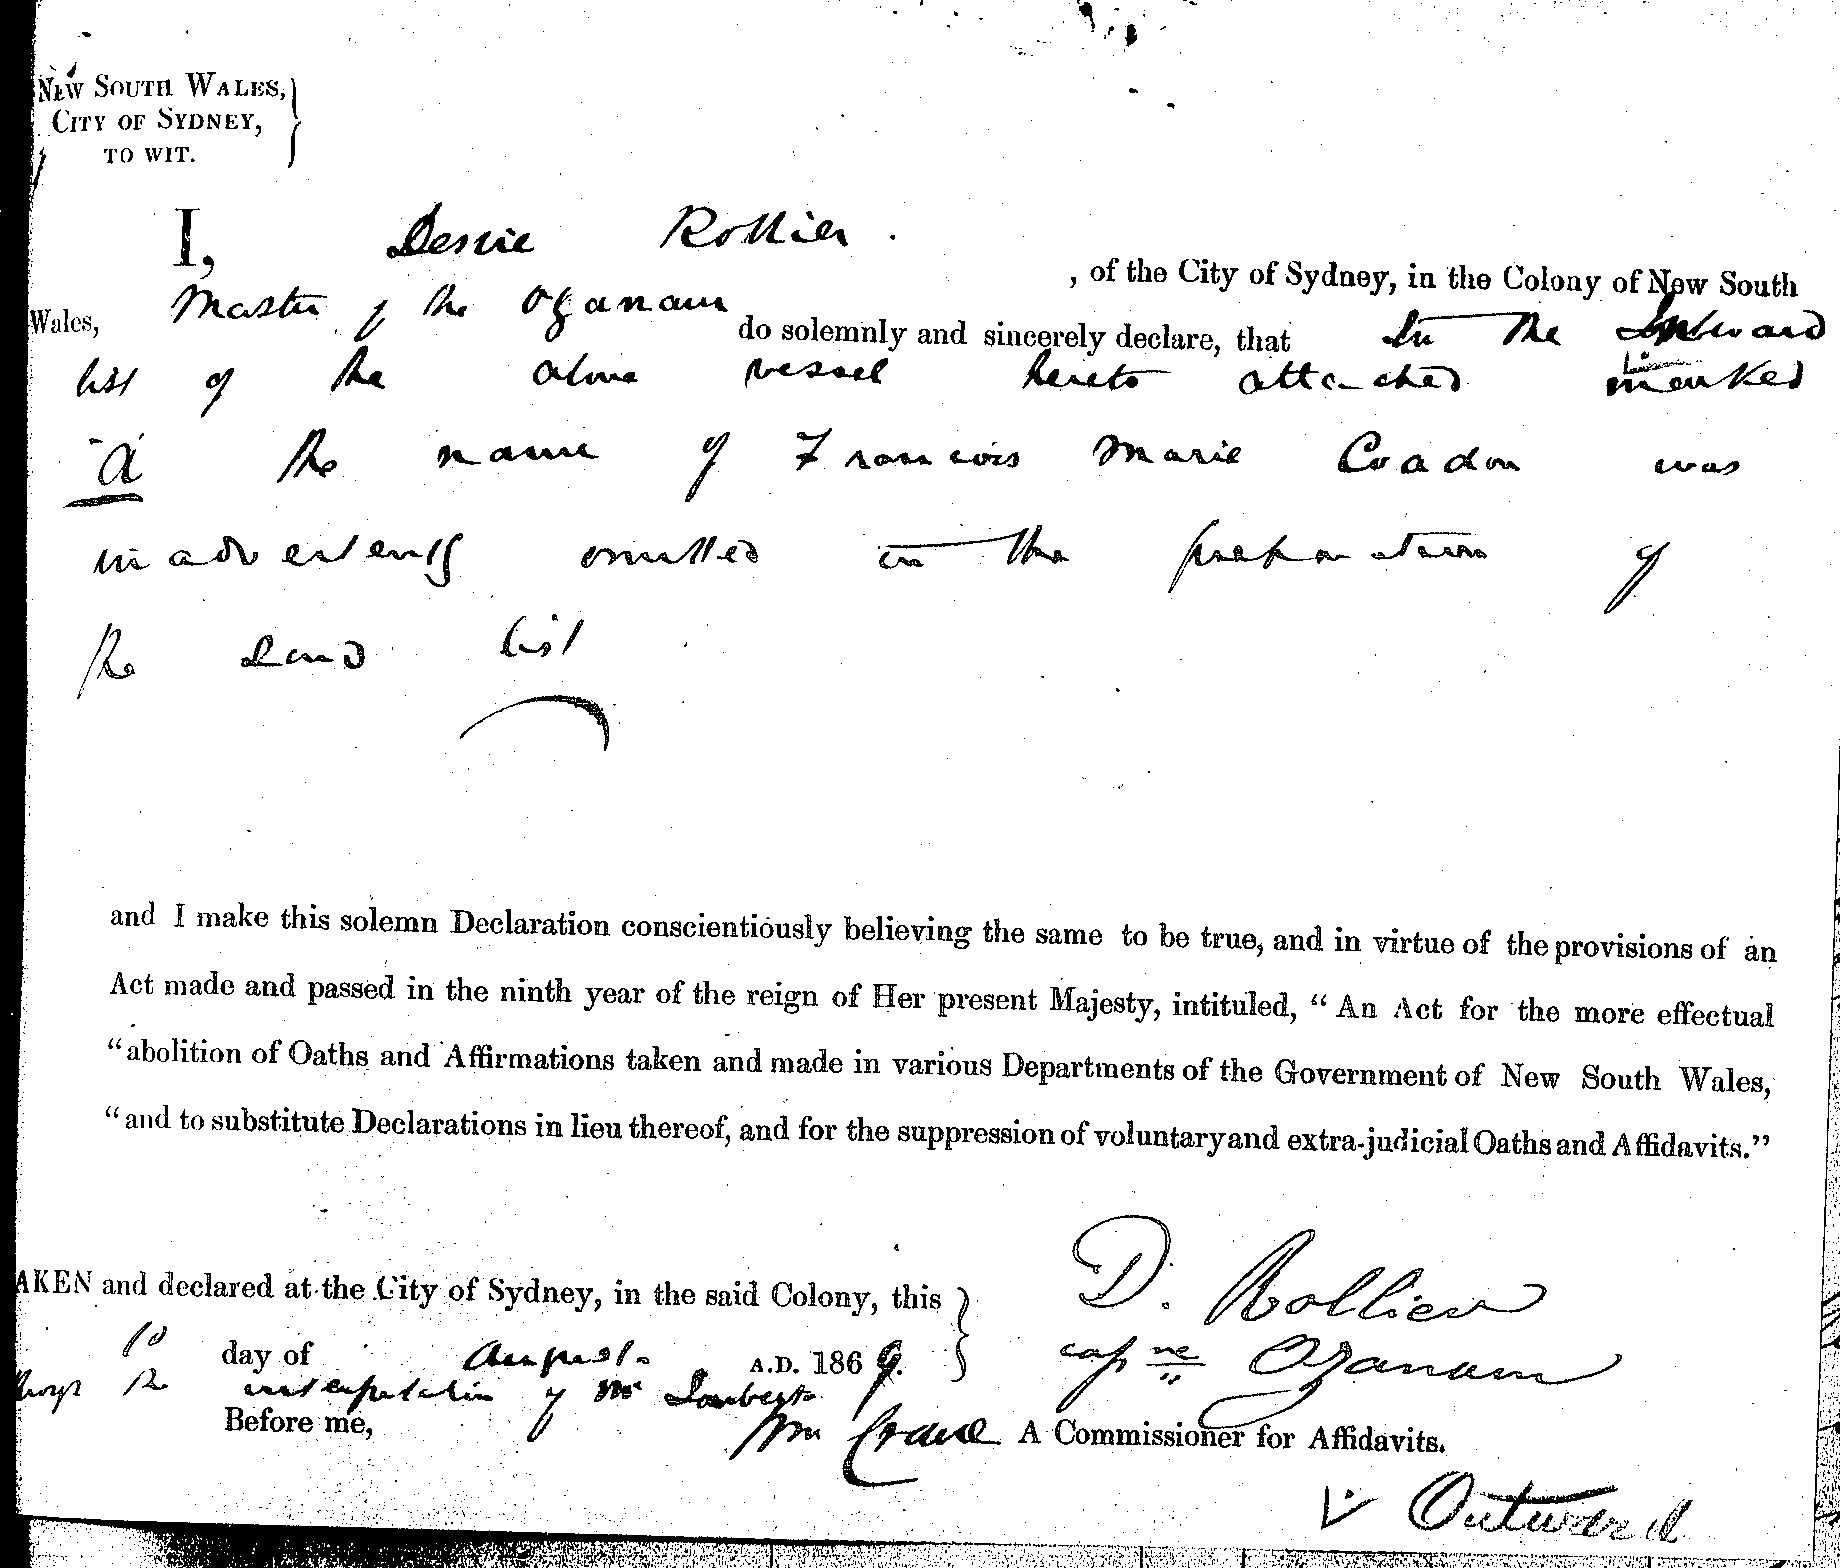 NEW SOUTH WALES,
CITY OF SYDNEY,
TO WIT.
I, Desire Rollier.
, of the City of Sydney, in the Colony of New South
Wales, Master of the Ozanam do solemnly and sincerely declare, that In the Inward
list of the above vessel hereto attached marked
"A" the name of Francois Marie Coadou was
inadvertently omitted in the preparation of
the said list
and I make this solemn Declaration conscientiously believing the same to be true, and in virtue of the provisions of an
Act made and passed in the ninth year of the reign of Her present Majesty, intituled, “ An Act for the more effectual
“abolition of Oaths and Affirmations taken and made in various Departments of the Government of New South Wales,
“and to substitute Declarations in lieu thereof, and for the suppression of voluntary and extra-judicial Oaths and Affidavits.”
AKEN and declared at the City of Sydney, in the said Colony, this
10 day of August A.D. 1869.
the interpretation of Mr Lambert
Before me, Wm Crane A Commissioner for Affidavits.
D. Rollier
capne Ozanam
Outward